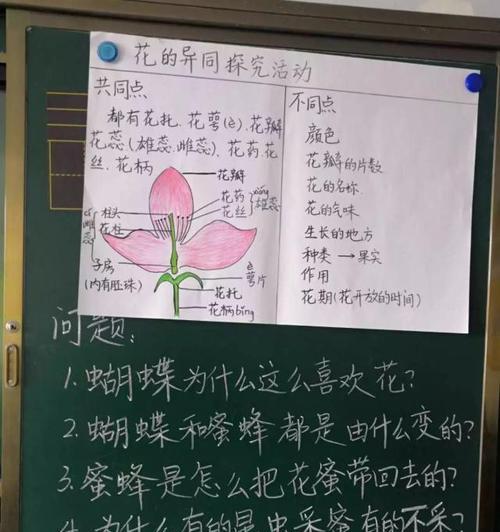 花的异同探究活动
共同点
都有花托、花萼(è)、花瓣
花蕊(雄蕊、雌蕊)、花药、花
丝、花柄
花瓣
花药
花丝
xióng
雄蕊
cí
雌蕊
柱头
花柱
子房
(内有胚珠)
è
萼片
花托
花柄bǐng
不同点
颜色
花瓣的片数
花的名称
花的气味
生长的地方
种类→果实
作用
花期(花开放的时间)
问题:
1.蝴蝶为什么这么喜欢花?
2.蝴蝶和蜜蜂都是由什么变的?
3.蜜蜂是怎么把花蜜带回去的?
4.为什么有的昆虫采蜜有的不采?